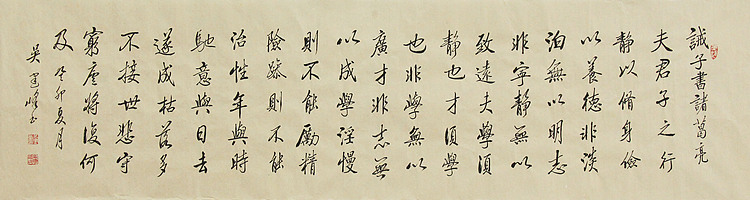 誡子書諸葛亮
夫君子之行
静以脩身儉
以養德非淡
泊無以明志
非寧静無以
致遠夫學須
静也才須學
也非學無以
廣才非志無
以成學淫慢
則不能勵精
險躁則不能
治性年與時
馳意與日去
遂成枯落多
不接世悲守
窮廬將復何
及 癸卯夏月
吴